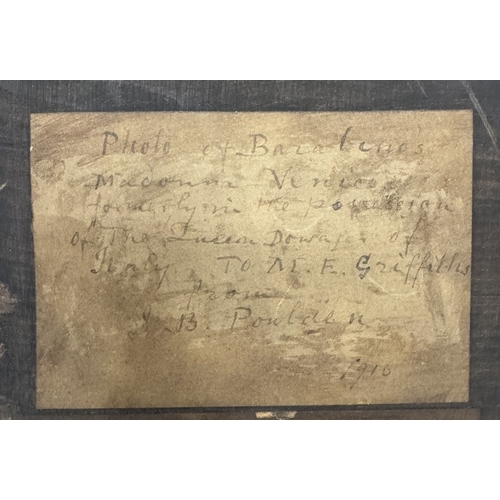 Photo of Barabino's
Madonna Venice
formerly in the possession
of The Queen Dowager of
Italy TO M. E. Griffiths
from
B. Poulden
1910